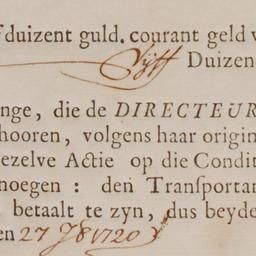 f duizent guld. courant geld v
Vijff Duizen
nge, die de DIRECTEUR
hooren, volgens haar origin
ezelve Actie op die Condit
noegen: den Transportar
betaalt te zyn, dus beyde
en 27 8b 1720